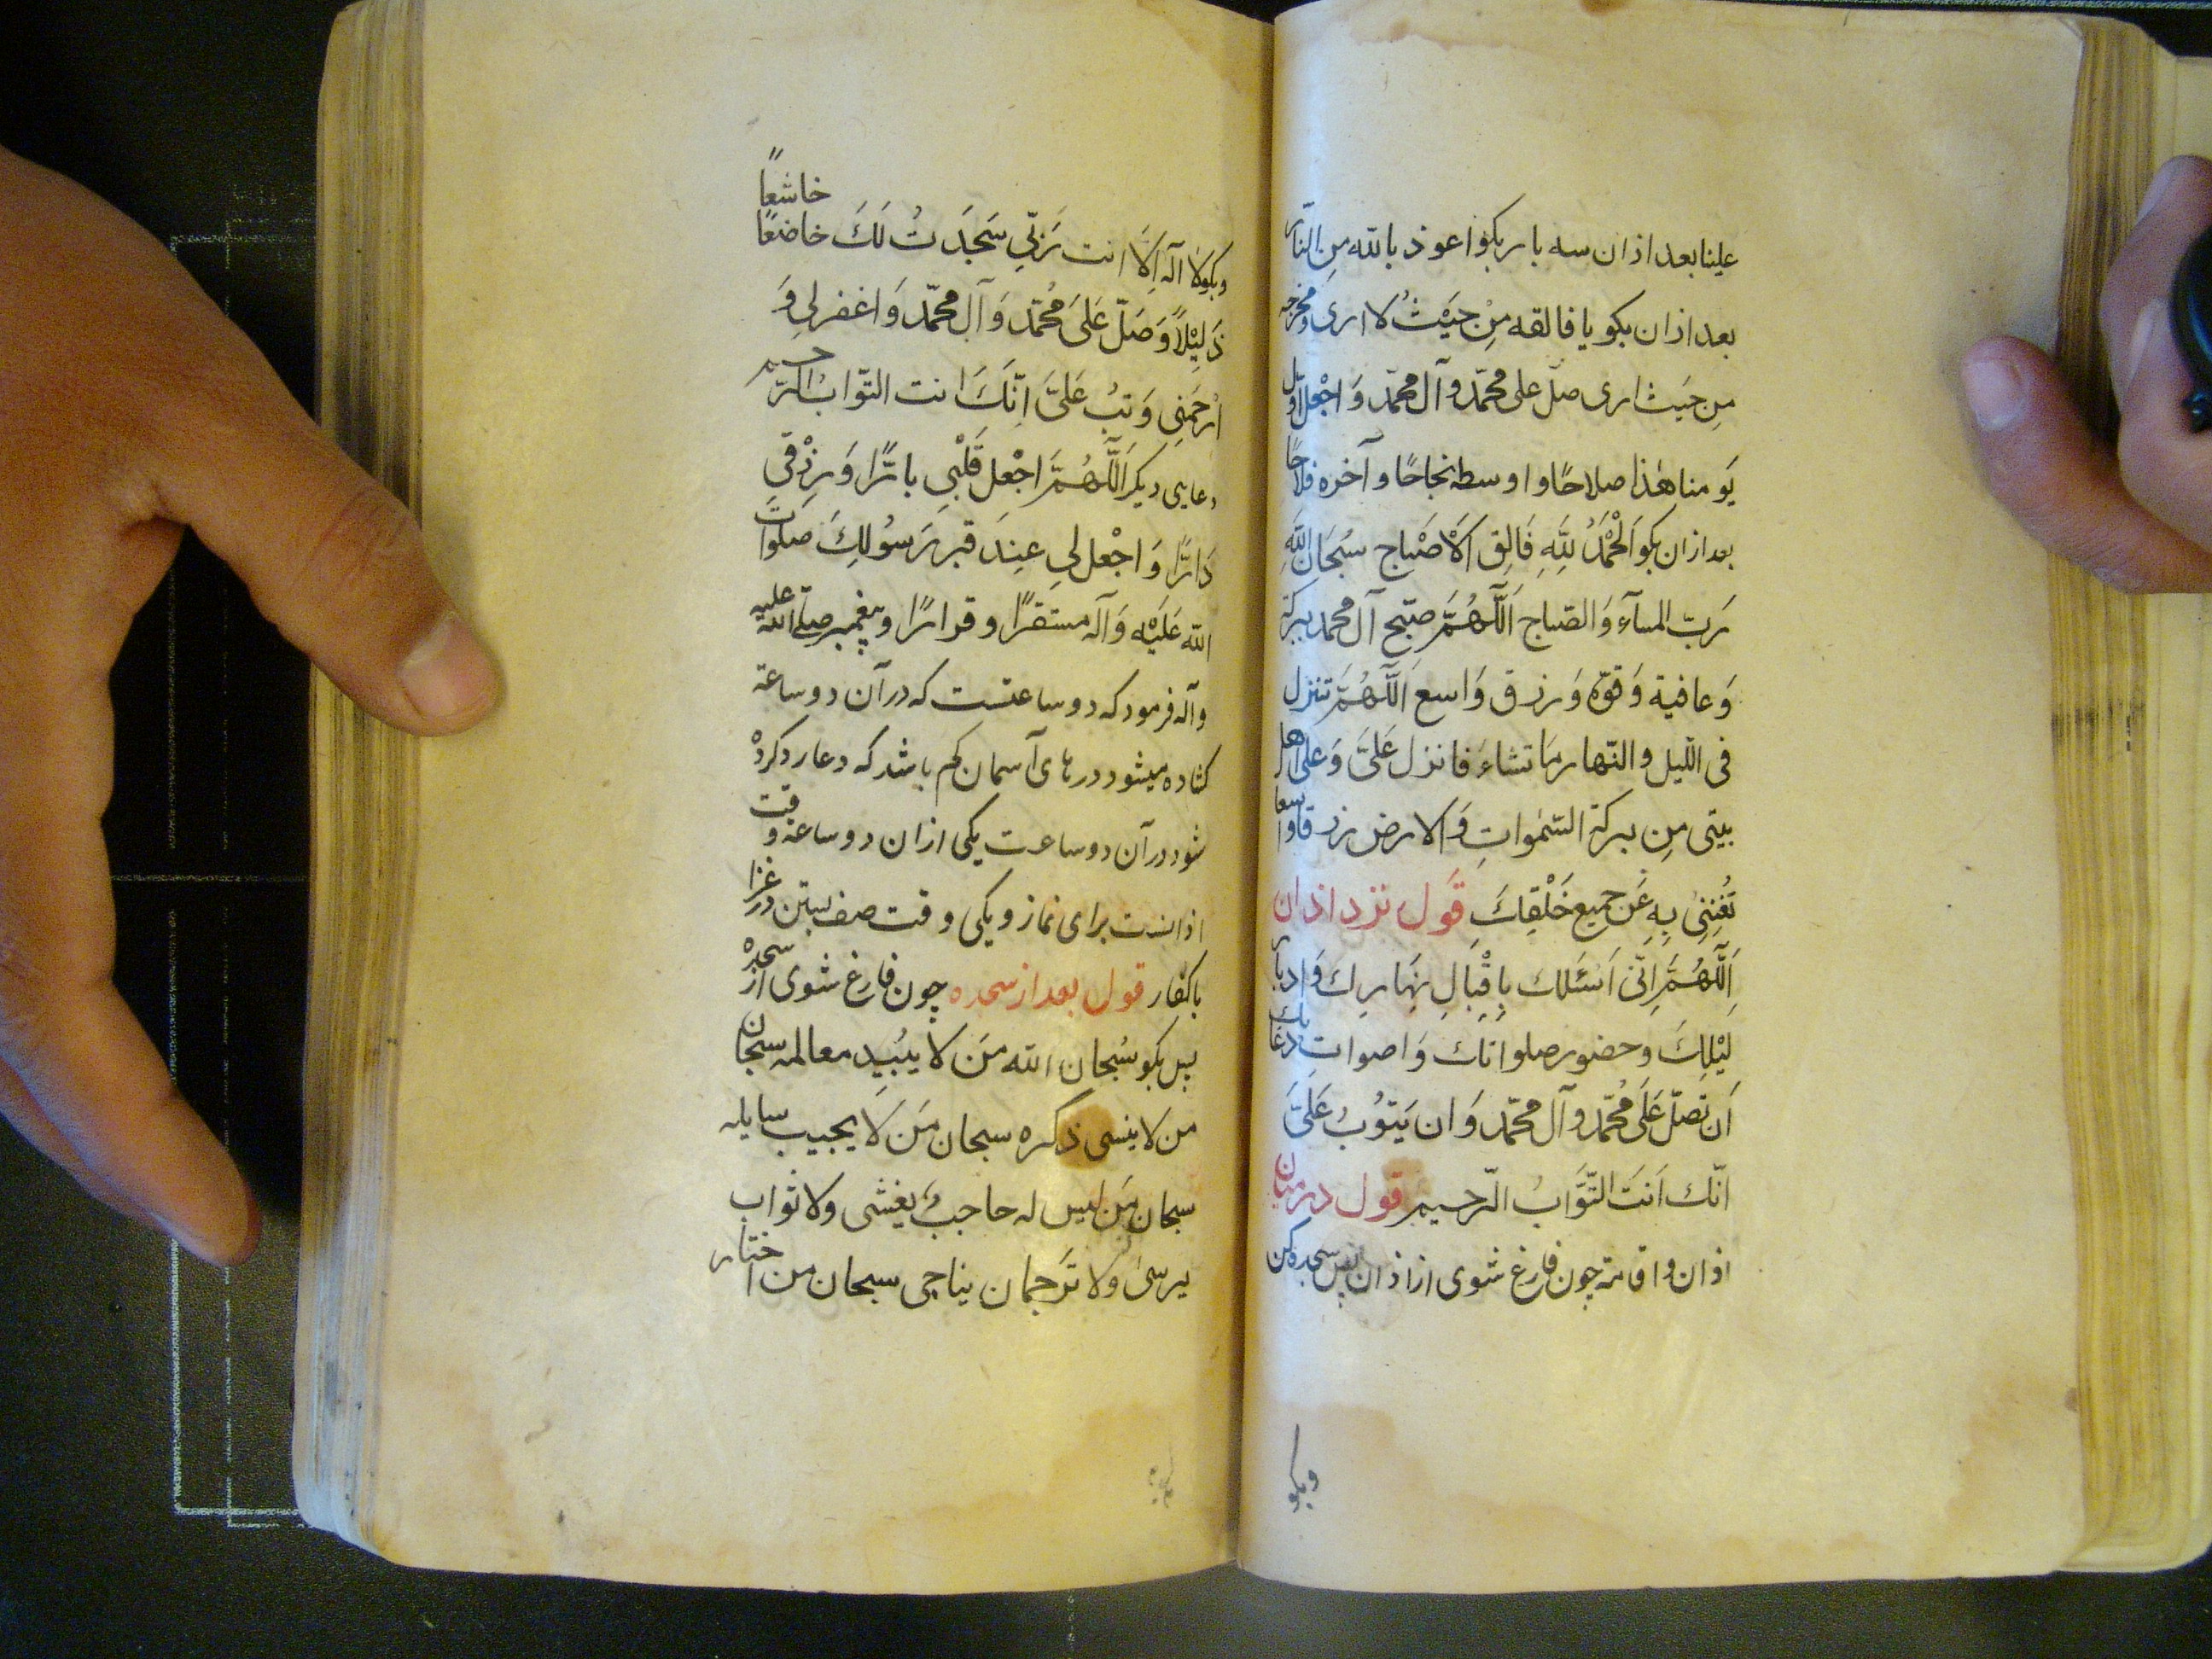 علینا بعد ازان سه بار بکو اعوذ بالله مِن النار
بعد ازان بکو یا فالقه مِنْ حَیْثُ لا اری ومخرجه
مِن حَیث اری صلّ علی محمّد وآل محمّد وَاجْعل اوّل
یَومنا هٰذا صلاحًا واوسطه نجاحًا وآخره فلاحًا
بعد ازان بکو اَلْحَمْدُ لِلّٰهِ فَالِقِ الْاَصْباح سُبْحَانَ اللّٰهِ
رَبّ المسآء وَالصّباح اَللّٰهُمَّ صَبّح آل محمد ببرکة
وَعافیة وَقوّة وَرزق وَاسع اَللّٰهُمَّ تنزل
فی اللّیل والنّهار مَا تشاءَ فانزل عَلیَّ وَعلی اهل
بیتی مِن برکة السّمٰواتِ وَالارض رزقا واسعا
تُغنِنی بِهِ عَن جمیع خَلْقِكَ قَول نزد اذان
اَللّٰهُمَّ اِنّی اَسئَلك بِاِقْبالِ نَهارِك وَادبار
لَیْلِكَ وحضور صلواتك وَاصوات دُعاتك
اَن تصَلّ عَلَی مُحَمّد وآل محمّد وَان یَتوُبُ عَلیَّ
انّك اَنتَ التَّوَّابُ الرّحیم قول در میان
اذان واقامة چون فارغ شوی از اذان پس سجده کن
وبکو
وبکو لا اله اِلّا انت رَبّی سَجَدَتُ لَكَ خاضعًا خاشعًا
ذَلیْلاً وَصَلّ عَلیَ مُحمّد وَآل محمّد وَاغفرلی وَ
اَرْحَمْنِی وَتبُ عَلیَّ اِنّكَ انت التوّابُ الرّحیم
دعایی دیکر اَللّٰهُمَّ اجْعل قَلْبی بارًّا وَرِزْقی
دَارًّا وَاجْعل لی عِندَ قبر رَسُولِكَ صَلَواتُ
الله عَلَیْه وَآله مستقرًّا وقرارًا وپیغمبر صلّی الله علیه
وآله فرمود که دو ساعتست که در آن دو ساعة
کشاده میشود درهای آسمان کم باشد که دعا رد کرده
شود در آن دو ساعت یکی ازان دو ساعة وقت
اذانست برای نماز ویکی وقت صف بستن در غزا
با کفار قول بعد از سجده چون فارغ شوی از سجده
پس بکو سُبحان الله مَن لا یبَیدِ معالمه سبحان
من لا ینسی ذکره سبحان مَن لَا یجیب سایله
سبحان مَن لیس له حاجب یغشی ولا ثواب
یرسیٰ ولا تَرجمان یناجی سبحان من اختار